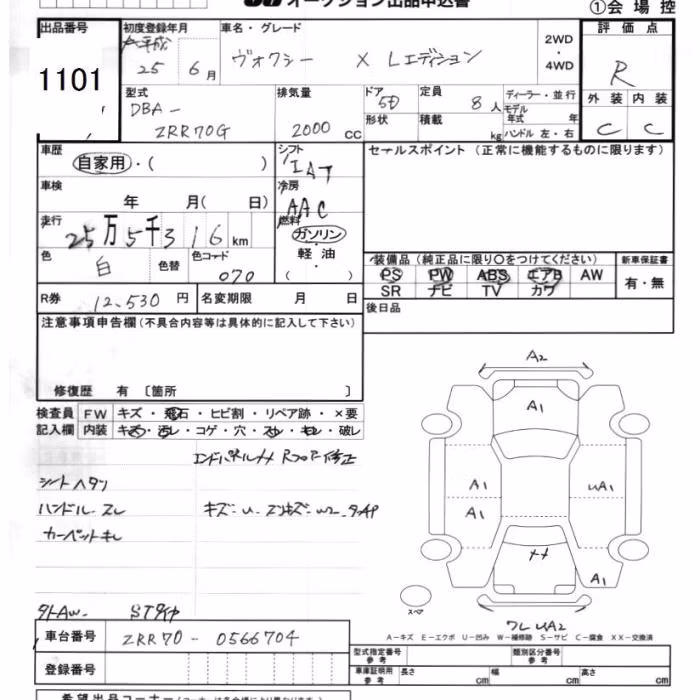 オークション出品申込書
①会場控
出品番号
1101
初度登録年月
平成
25 6月
車名・グレード
ヴォクシー X Lエディション
2WD
・
4WD
評価点
R
外装 内装
C C
型式
DBA-
ZRR70G
排気量
2000 cc
ドア 5D
形状
定員 8人
積載 kg
ディーラー・並行
モデル
年式 年
ハンドル 左・右
車歴
自家用・( )
シフト
IAT
セールスポイント(正常に機能するものに限ります)
車検
年 月( 日)
冷房
AAC
走行
25万5千316km
燃料
ガソリン
・
軽油
・
( )
色
白
色替
色コード
070
装備品(純正品に限り○をつけてください)
PS PW ABS エアB AW
SR ナビ TV カワ
新車保証書
有・無
R券 12,530円
名変期限 月 日
後日品
注意事項申告欄(不具合内容等は具体的に記入して下さい)
修復歴 有 〔箇所 〕
検査員
記入欄
FW キズ・飛石・ヒビ割・リペア跡・×要
内装 キズ・汚レ・コゲ・穴・スレ・キレ・破レ
シートヘタリ
ハンドルスレ
カーペットキレ
A2
A1
A1
A1
UA1
XX
A1
スペア
A−キズ E−エクボ U−凹み W−補修跡 S−サビ C−腐食 XX−交換済
車台番号 ZRR70-0566704
登録番号
型式指定番号
参考
類別区分番号
参考
車庫証明用
参考
長さ cm 幅 cm 高さ cm
希望出品コーナー